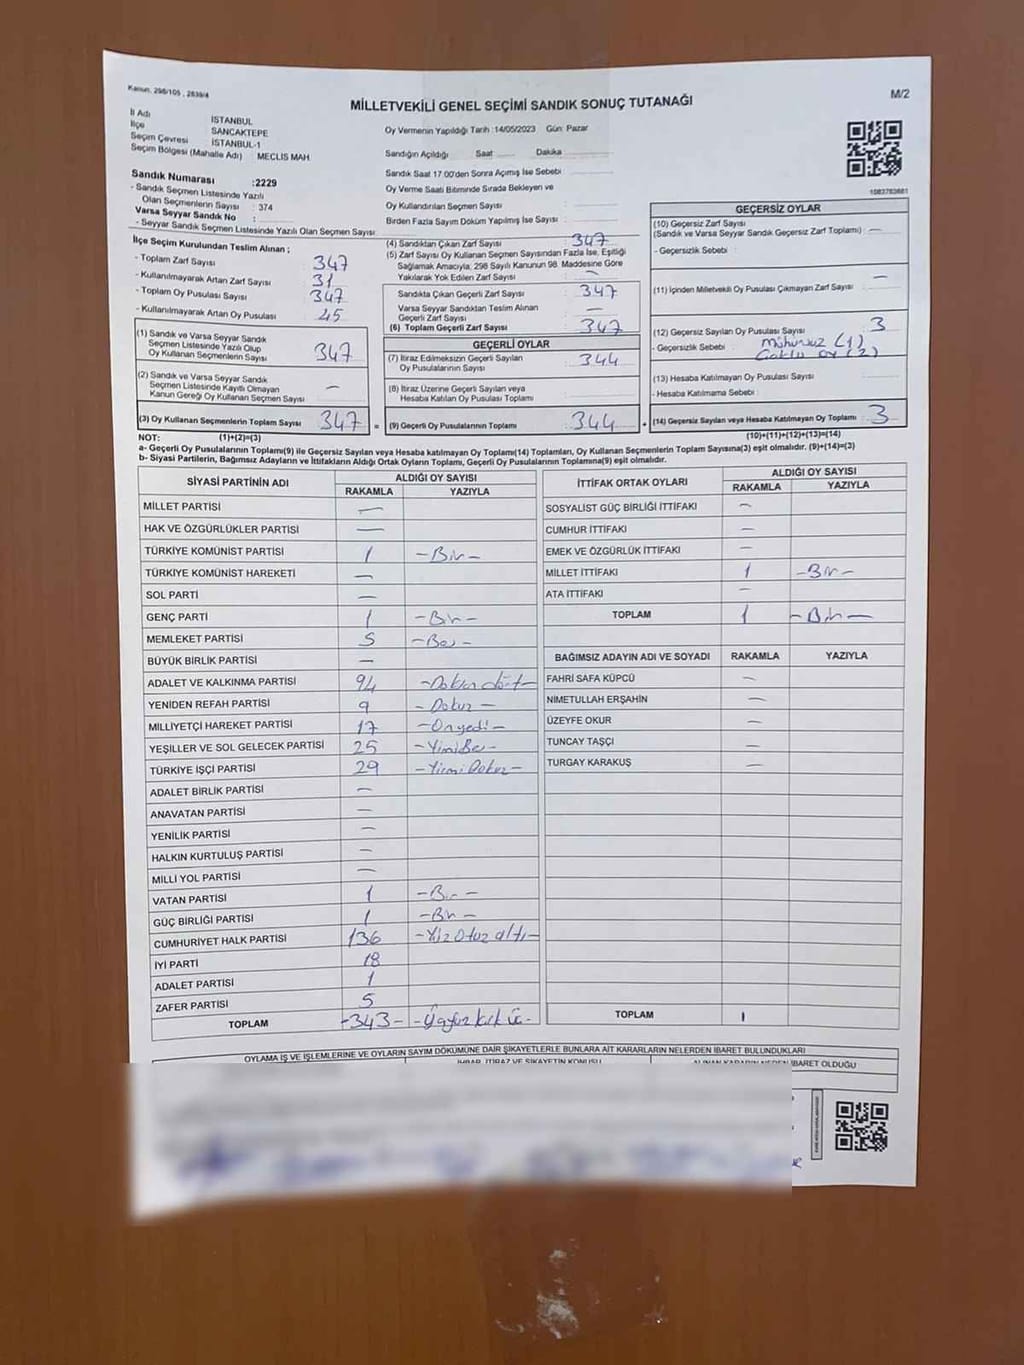 Kanun, 298/105 , 2839/4
MİLLETVEKİLİ GENEL SEÇİMİ SANDIK SONUÇ TUTANAĞI
M/2
İl Adı İSTANBUL
İlçe SANCAKTEPE
Seçim Çevresi İSTANBUL-1
Seçim Bölgesi (Mahalle Adı) MECLIS MAH
Sandık Numarası :2229
- Sandık Seçmen Listesinde Yazılı
Olan Seçmenlerin Sayısı : 374
Varsa Seyyar Sandık No :
- Seyyar Sandık Seçmen Listesinde Yazılı Olan Seçmen Sayısı:
Oy Vermenin Yapıldığı Tarih :14/05/2023 Gün: Pazar
Sandığın Açıldığı Saat: Dakika
Sandık Saat 17:00'den Sonra Açımış İse Sebebi
Oy Verme Saati Bitiminde Sırada Bekleyen ve
Oy Kullandırılan Seçmen Sayısı :
Birden Fazla Sayım Döküm Yapılmış İse Sayısı :
1083783681
İlçe Seçim Kurulundan Teslim Alınan ;
- Toplam Zarf Sayısı 347
- Kullanılmayarak Artan Zarf Sayısı 31
- Toplam Oy Pusulası Sayısı 347
- Kullanılmayarak Artan Oy Pusulası 45
(1) Sandık ve Varsa Seyyar Sandık
Seçmen Listesinde Yazılı Olup
Oy Kullanan Seçmenlerin Sayısı : 347
(2) Sandık ve Varsa Seyyar Sandık
Seçmen Listesinde Kayıtlı Olmayan
Kanun Gereği Oy Kullanan Seçmen Sayısı : —
(3) Oy Kullanan Seçmenlerin Toplam Sayısı 347
(1)+(2)=(3)
(4) Sandıktan Çıkan Zarf Sayısı : 347
(5) Zarf Sayısı Oy Kullanan Seçmen Sayısından Fazla İse, Eşitliği
Sağlamak Amacıyla, 298 Sayılı Kanunun 98. Maddesine Göre
Yakılarak Yok Edilen Zarf Sayısı : —
Sandıkta Çıkan Geçerli Zarf Sayısı : 347
Varsa Seyyar Sandıktan Teslim Alınan
Geçerli Zarf Sayısı : —
(6) Toplam Geçerli Zarf Sayısı : 347
GEÇERLİ OYLAR
(7) İtiraz Edilmeksizin Geçerli Sayılan
Oy Pusulalarının Sayısı : 344
(8) İtiraz Üzerine Geçerli Sayılan veya
Hesaba Katılan Oy Pusulası Toplamı :
= (9) Geçerli Oy Pusulalarının Toplamı : 344
GEÇERSİZ OYLAR
(10) Geçersiz Zarf Sayısı
(Sandık ve Varsa Seyyar Sandık Geçersiz Zarf Toplamı) : —
- Geçersizlik Sebebi :
(11) İçinden Milletvekili Oy Pusulası Çıkmayan Zarf Sayısı : —
(12) Geçersiz Sayılan Oy Pusulası Sayısı : 3
- Geçersizlik Sebebi : Mühürsüz (1)
Çoklu oy (2)
(13) Hesaba Katılmayan Oy Pusulası Sayısı :
- Hesaba Katılmama Sebebi :
+ (14) Geçersiz Sayılan veya Hesaba Katılmayan Oy Toplamı : 3
(10)+(11)+(12)+(13)=(14)
NOT:
a- Geçerli Oy Pusulalarının Toplamı(9) ile Geçersiz Sayılan veya Hesaba katılmayan Oy Toplamı(14) Toplamları, Oy Kullanan Seçmenlerin Toplam Sayısına(3) eşit olmalıdır. (9)+(14)=(3)
b- Siyasi Partilerin, Bağımsız Adayların ve İttifakların Aldığı Ortak Oyların Toplamı, Geçerli Oy Pusulalarının Toplamına(9) eşit olmalıdır.
SİYASİ PARTİNİN ADI ALDIĞI OY SAYISI
RAKAMLA YAZIYLA
MİLLET PARTİSİ —
HAK VE ÖZGÜRLÜKLER PARTİSİ —
TÜRKİYE KOMÜNİST PARTİSİ 1 -Bir-
TÜRKİYE KOMÜNİST HAREKETİ —
SOL PARTİ —
GENÇ PARTİ 1 -Bir-
MEMLEKET PARTİSİ 5 -Beş-
BÜYÜK BİRLİK PARTİSİ —
ADALET VE KALKINMA PARTİSİ 94 -Doksan dört-
YENİDEN REFAH PARTİSİ 9 -Dokuz-
MİLLİYETÇİ HAREKET PARTİSİ 17 -Onyedi-
YEŞİLLER VE SOL GELECEK PARTİSİ 25 -YirmiBeş-
TÜRKİYE İŞÇİ PARTİSİ 29 -Yirmi Dokuz-
ADALET BİRLİK PARTİSİ —
ANAVATAN PARTİSİ —
YENİLİK PARTİSİ —
HALKIN KURTULUŞ PARTİSİ —
MİLLİ YOL PARTİSİ —
VATAN PARTİSİ 1 -Bir-
GÜÇ BİRLİĞİ PARTİSİ 1 -Bir-
CUMHURİYET HALK PARTİSİ 136 -Yüz Otuz altı-
İYİ PARTİ 18
ADALET PARTİSİ 1
ZAFER PARTİSİ 5
TOPLAM -343- -Üçyüz kırk üç-
İTTİFAK ORTAK OYLARI ALDIĞI OY SAYISI
RAKAMLA YAZIYLA
SOSYALİST GÜÇ BİRLİĞİ İTTİFAKI —
CUMHUR İTTİFAKI —
EMEK VE ÖZGÜRLÜK İTTİFAKI —
MİLLET İTTİFAKI 1 -Bir-
ATA İTTİFAKI —
TOPLAM 1 -Bir-
BAĞIMSIZ ADAYIN ADI VE SOYADI RAKAMLA YAZIYLA
FAHRİ SAFA KÜPCÜ —
NİMETULLAH ERŞAHİN —
ÜZEYFE OKUR —
TUNCAY TAŞÇI —
TURGAY KARAKUŞ —
TOPLAM 1
OYLAMA İŞ VE İŞLEMLERİNE VE OYLARIN SAYIM DÖKÜMÜNE DAİR ŞİKAYETLERLE BUNLARA AİT KARARLARIN NELERDEN İBARET BULUNDUKLARI
İHBAR, İTİRAZ VE ŞİKAYETİN KONUSU ALINAN KARARIN NEDEN İBARET OLDUĞU